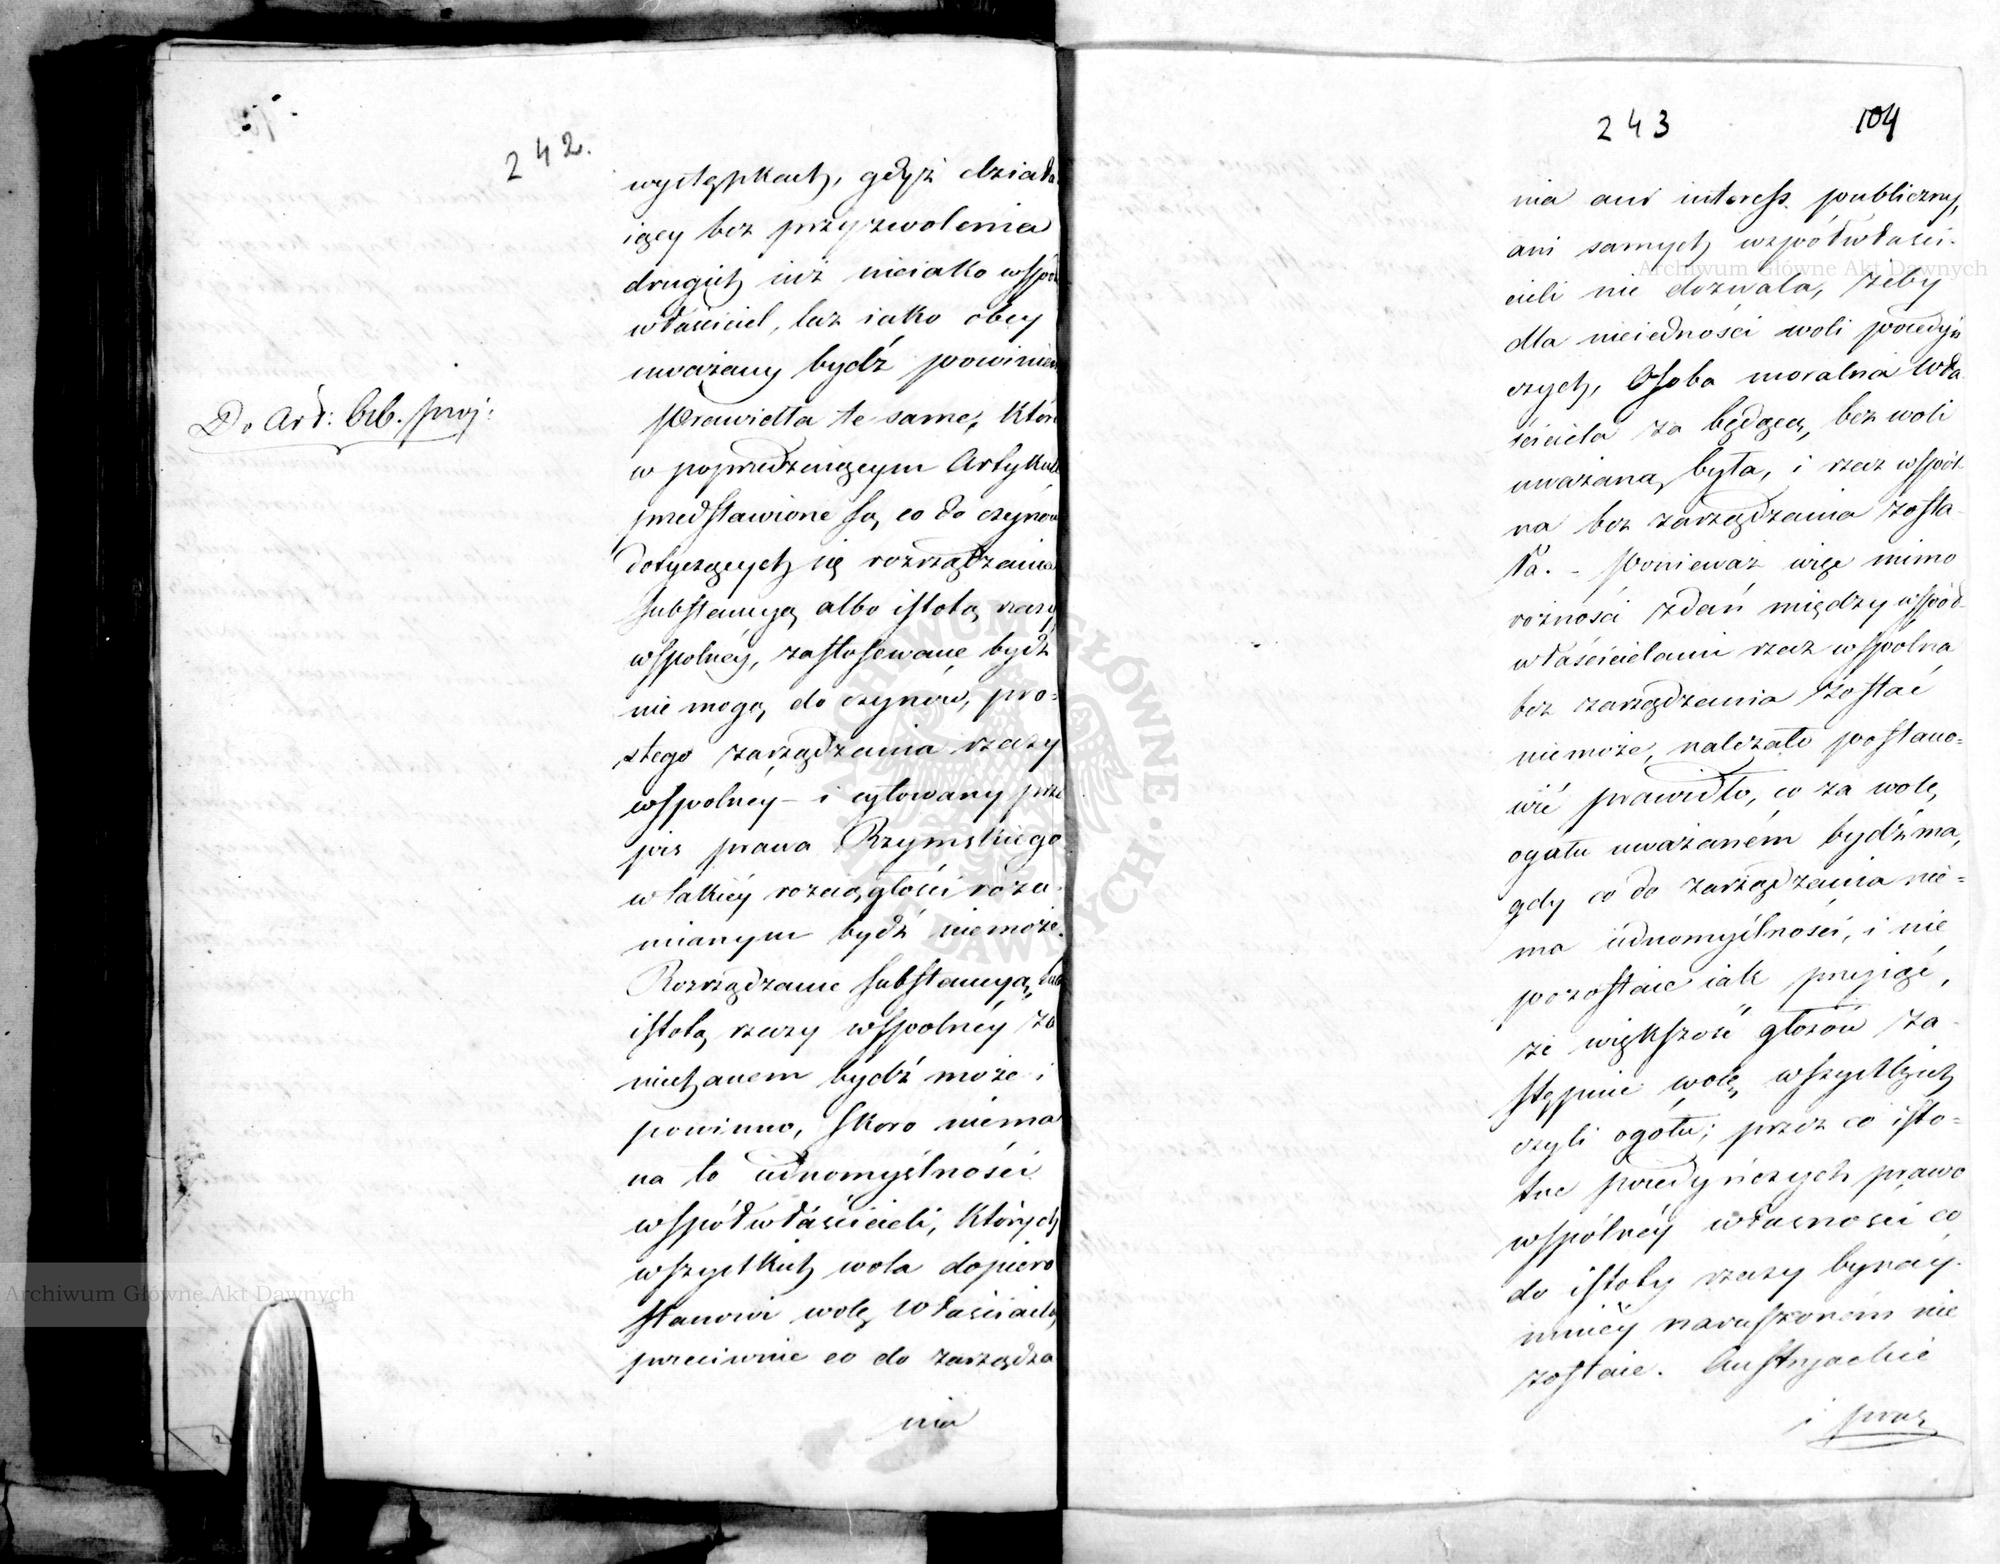 242.
występkach, gdyż działa
iący bez przyzwolenia
drugich iuż nieiako współ
właściciel, lecz iako obcy
uważany bydź powinien
Do Art: 616. proj:
Prawidła te same, któr
w poprzedzaiącym Artykule
przedstawione są, co do czynów
dotyczących się rozrządzania
substancyą albo istotą rzeczy
wspolnéy, zastosowane bydź
nie mogą do czynów, pro=
stego zarządzania rzeczy
wspolnéy – i cytowany prze
pis prawa Rzymskiego
w takiéy rozciągłości rozu
mianym bydź niemoże.
Rozrządzanie substancyą, lub
istotą rzeczy wspolnéy za
niechanem bydź może i
powinno, skoro niema
na to iednomyślności
współwłaścicieli, których
wszystkich wola dopiero
stanowi wolę Właściciela,
przeciwnie co do zarządza
nia
243
104
nia ani interess publiczny,
ani samych współwłaści-
cieli nie dozwala, żeby
dla nieiedności woli poiedyń
czych, Osoba moralna Wła
ściciela za będącą bez woli
uważaną była, i rzecz wspól
na bez zarządzania zosta
ła. – Ponieważ więc mimo
rożności zdań między współ-
właścicielami rzecz wspólna
bez zarządzania zostać
niemoże, należało postano=
wić prawidło, co za wolę
ogółu uważaném bydź ma,
gdy co do zarządzania nie=
ma iednomyślności, i nie
pozostaie iak przyiąć,
że większość głosów za-
stępuie wolę wszystkich
czyli ogółu; przez co isto=
tne poiedyńczych prawo
wspólnéy własności co
do istoty rzeczy bynay-
mniéy naruszoném nie
zostaie. Austryackie
i prus
Archiwum Główne Akt Dawnych
Archiwum Główne Akt Dawnych
ARCHIWUM GŁÓWNE AKT DAWNYCH